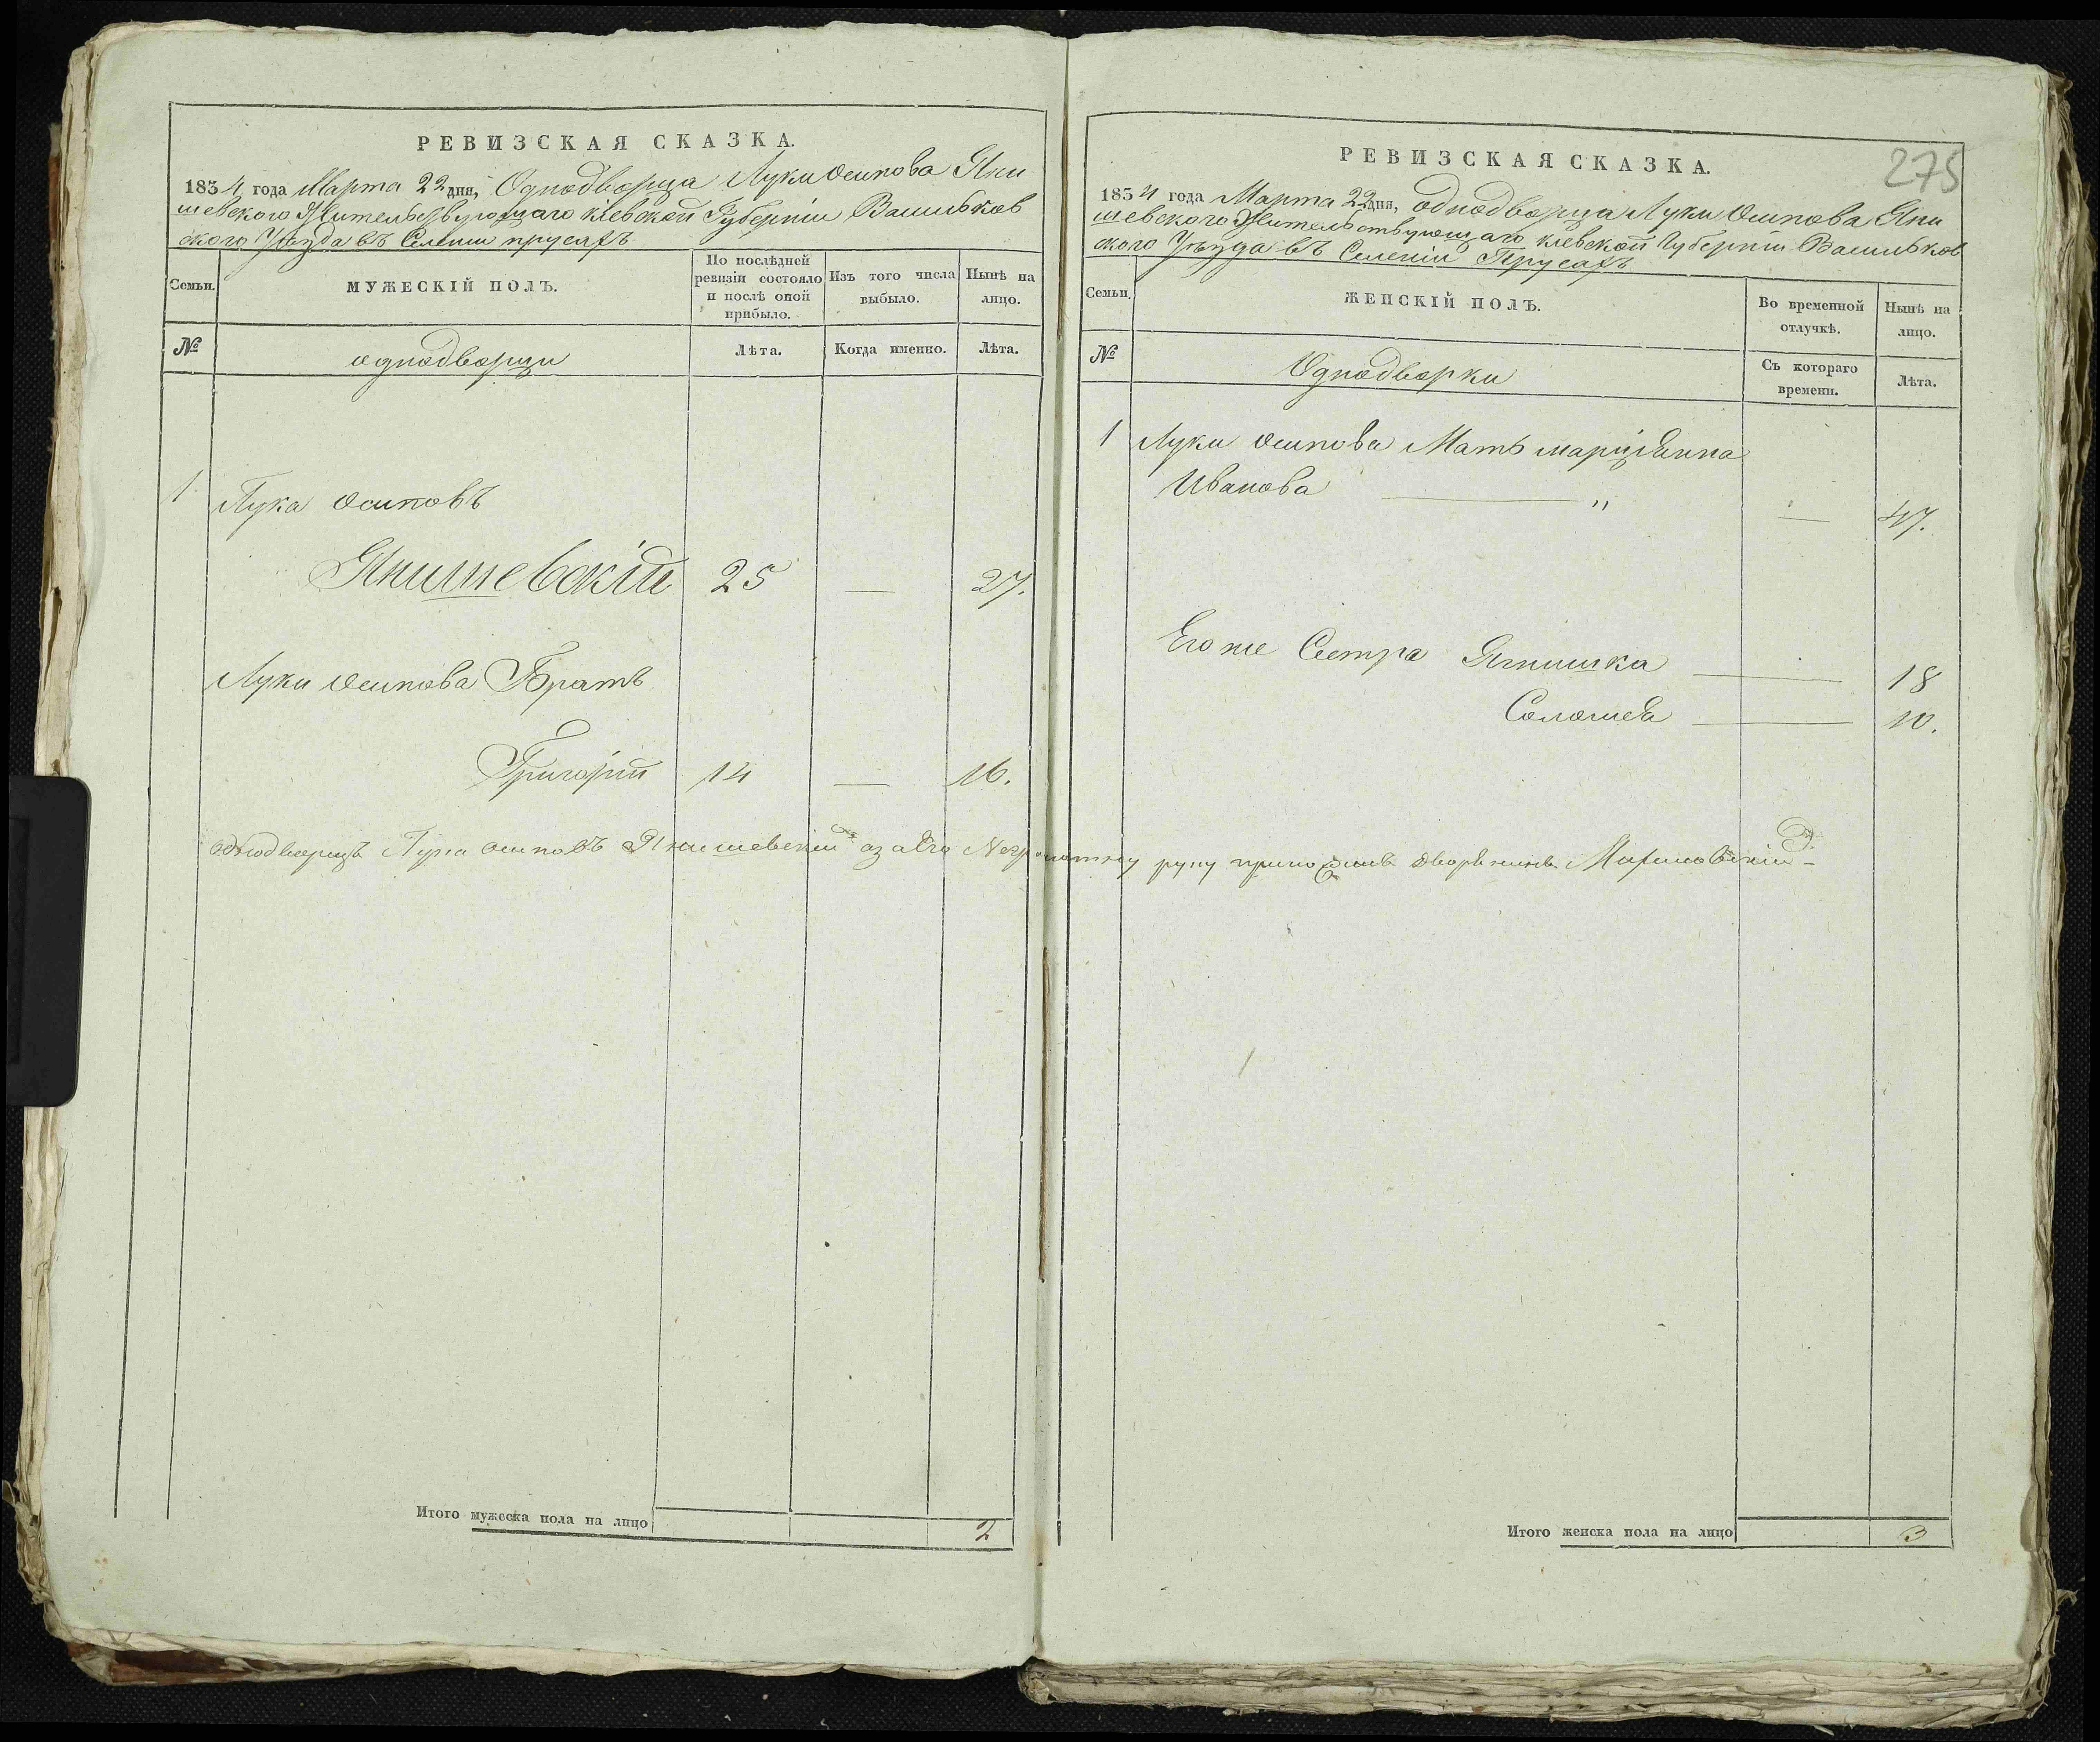 РЕВИЗСКАЯ СКАЗКА.
1834 года Марта 22 дня, Однодворца Луки Осипова Яни
шевского Жительствующаго Кіевской Губерніи Васильков
ского Уезда въ Селеніи Прусахъ
Семьи.
МУЖЕСКІЙ ПОЛЪ.
По послѣдней ревизіи состояло и послѣ оной прибыло.
Изъ того числа выбыло.
Нынѣ на лицо.
№
однодворцы
Лѣта.
Когда именно.
Лѣта.
1 Лука Осиповъ
Янишевскій 25 — 27.
Луки Осипова Братъ
Григорій 14 — 16.
однодворецъ Лука Осиповъ Янишевскій а за его Неграмотному руку приложилъ дворянинъ
Итого мужеска пола на лицо 2
275
РЕВИЗСКАЯ СКАЗКА.
1834 года Марта 22 дня, однодворца Луки Осипова Яни
шевского Жительствующаго Кіевской Губерніи Васильков
ского Уезда въ Селеніи Прусахъ
Семьи.
ЖЕНСКІЙ ПОЛЪ.
Во временной отлучкѣ.
Нынѣ на лицо.
№
Однодворки
Съ котораго времени.
Лѣта.
1 Луки Осипова Мать Марціянна
Иванова — " — 47.
Его же Сестра Ягнишка — 18
Соломея — 10.
Итого женска пола на лицо 3